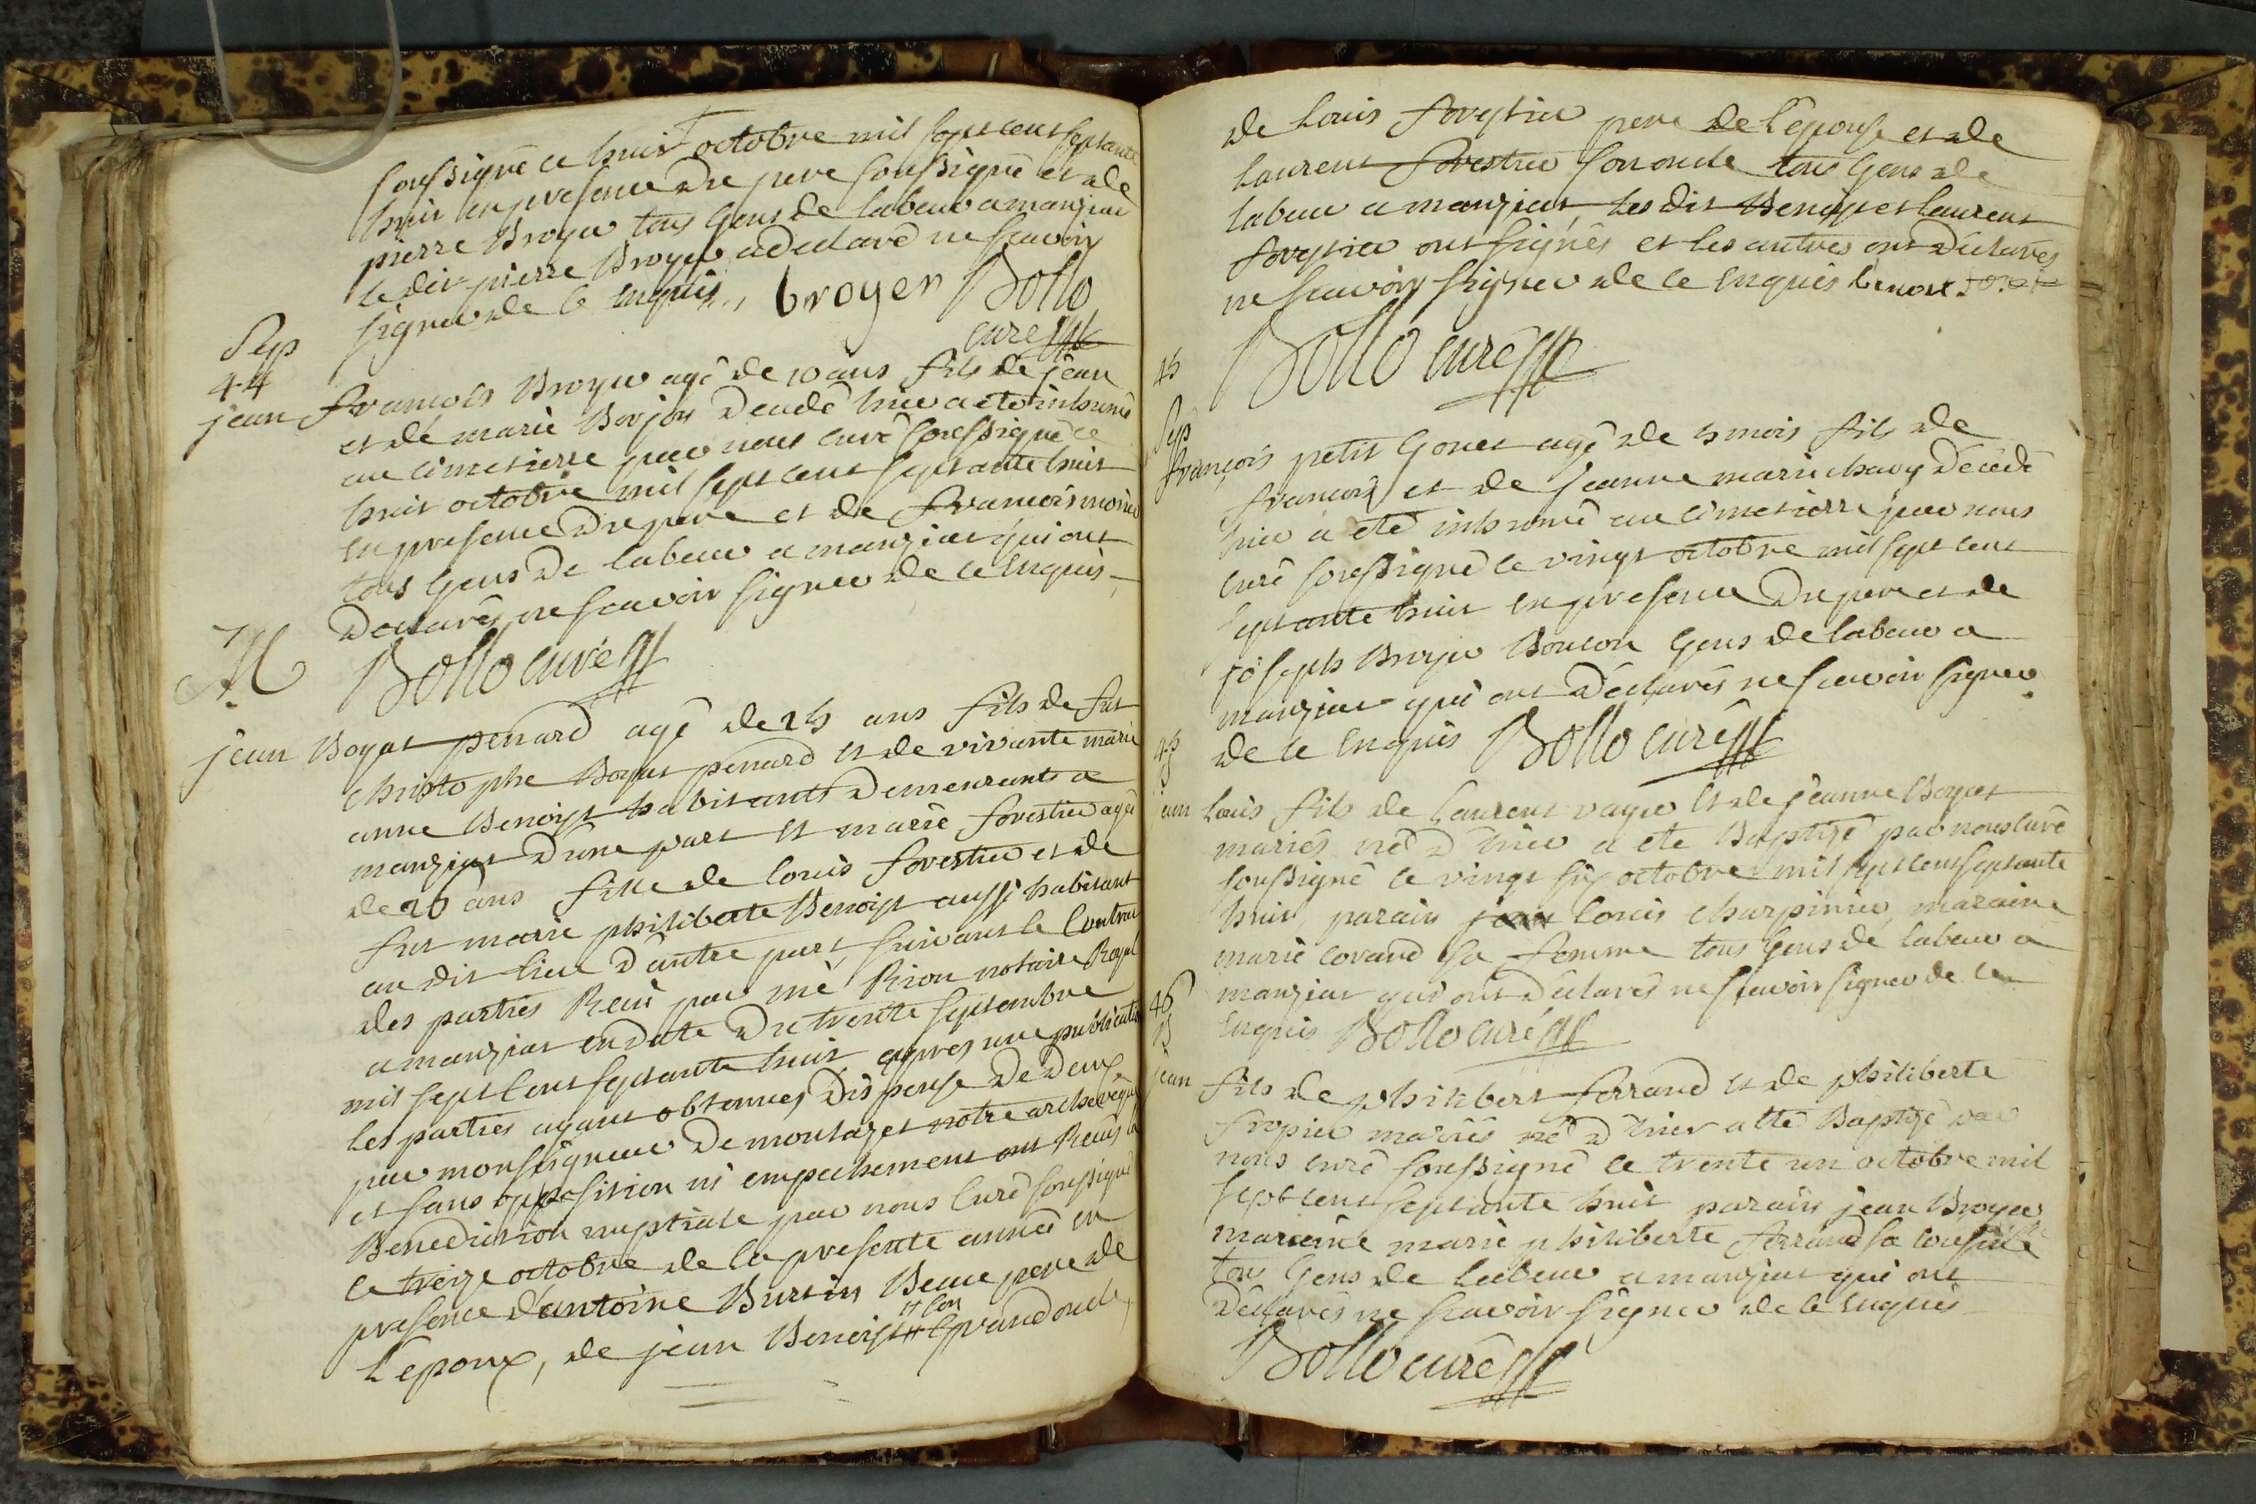 soussigné ce huit octobre mil sept cent septante
huit en presence du pere soussigné et de
pierre Broyer tous gens de labeur a manziat
le dit pierre Broyer a declaré ne scavoir
signer de ce enquis,, broyer Bollo
curé
Sep
44
jean francois Broyer agé de 10 ans fils de jean
et de marie Borjon decedé hier a eté inhumé
au cimetierre par nous curé soussigné ce
huit octobre mil sept cent septante huit
en presence du pere et de francois
tous gens de labeur a manziat qui ont
declarés ne scavoir signer de ce enquis
Bollo curé
M
jean Boyat penard agé de 25 ans fils de fut
christophe Boyat penard et de vivante marie
anne Benoist habitants demeurants a
manziat d'une part et marie forestier agée
de 26 ans fille de louis forestier et de
fut marie philiberte Benoist aussi habitant
au dit lieu d'autre part, suivant le Contrat
des parties Reçu par mè Rion notaire Royal
a manziat en date du trente septembre
mil sept cent septante huit apres une publication
les parties ayant obtenues Dispense de deux
par monseigneur de montazet notre archevêque
et sans opposition ni empechement ont Reçus la
Benediction nuptiale par nous Curé soussigné
ce treize octobre de la presente année en
presence d'antoine Burtin Beau pere de
l'epoux, de jean Benoist # son grand oncle,
de louis forestier pere de l'epouse et de
laurent forestier son oncle tous gens de
labeur a manziat, les dit Benoist et laurent
forestier ont signés et les autres ont declarés
ne scavoir signer de ce enquis benoit
Bollo curé
45
Sep
françois petit Gonet agé de 5 mois fils de
francois et de jeanne marie chavy décédé
hier a eté inhumé au cimetierre par nous
curé soussigné ce vingt octobre mil sept cent
septante huit en presence du pere et de
joseph Broyer Bouton gens de labeur a
manziat qui ont declarés ne scavoir signer
de ce enquis Bollo curé
45
B
jean louis fils de laurent vayer et de jeanne Boyat
mariés né d'hier a eté Baptizé par nous curé
soussigné ce vingt six octobre mil sept cent septante
huit, parain louis charpinier, maraine
marie corand sa femme tous gens de labeur a
manziat qui ont declarés ne scavoir signer de ce
enquis Bollo curé
46
B
jean fils de philibert ferrand et de philiberte
fropier mariés né d'hier a eté Baptizé par
nous curé soussigné ce trente un octobre mil
sept cent septante huit parain jean Broyer
maraine marie philiberte ferrand sa cousine
tous gens de labeur a manziat qui ont
declarés ne scavoir signer de ce enquis
Bollo curé